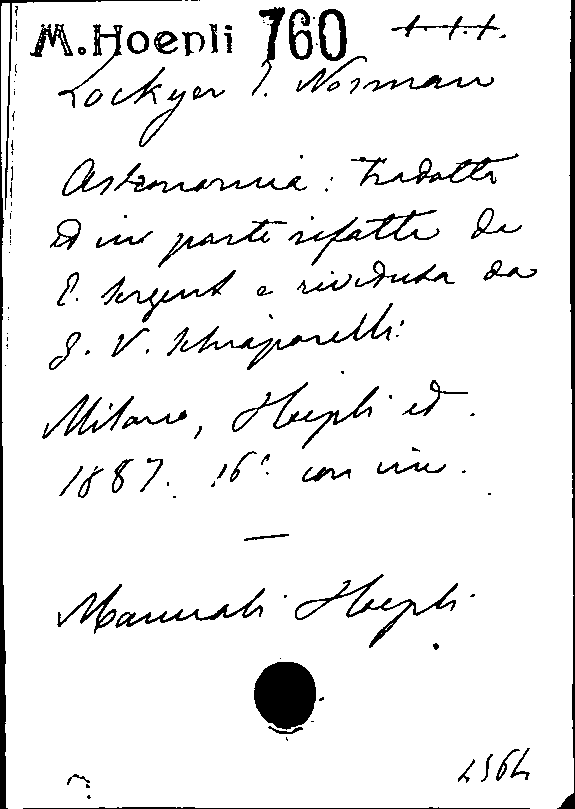 M. Hoepli 760
Lockyer J. Norman
Astronomia: tradotta
ed in parte rifatta da
E. Sergent e riveduta da
G. V. Schiaparelli:
Milano, Hoepli ed.
1887. 16° con inc.
Manuali Hoepli.